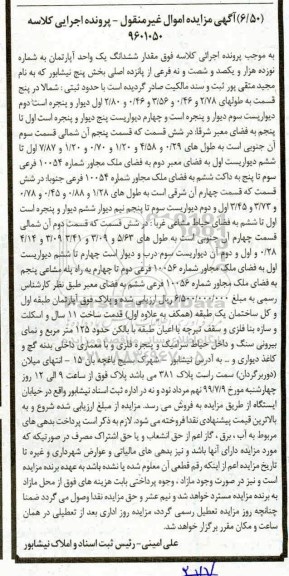 (۶/۵۰) آگهی مزایده اموال غیر منقول - پرونده اجرایی کلاسه
۹۶۰۱۰۵۰
به موجب پرونده اجرائی کلاسه فوق مقدار ششدانگ یک واحد آپارتمان به شماره
نوزده هزار و یکصد و شصت و نه فرعی از پانزده اصلی بخش پنج نیشابور که به نام
مجید متقی پور ثبت و سند مالکیت صادر گردیده است با حدود ثبتی : شمالا در پنج
قسمت به طولهای ۲/۷۸ و ۰/۴۶ و ۳/۵۶ و ۰/۴۶ و ۲/۸۰ اول دیوار و پنجره است دوم
دیواریست سوم دیوار و پنجره است و چهارم دیواریست پنج دیوار و پنجره است اول تا
پنجم به فضای معبر شرقا: در شش قسمت که قسمت پنجم آن شمالی قسمت سوم
آن جنوبی است به طول های ۰/۲۹ و ۴/۵۸ و ۱/۲۰ و ۰/۷۰ و ۱/۲۰ و ۷/۸۷ اول تا
ششم دیواریست اول به فضای معبر دوم به فضای ملک مجاور شماره ۱۰۰۵۴ فرعی
سوم تا پنج به داکت ششم به فضای ملک مجاور شماره ۱۰۰۵۴ فرعی جنوبا: در شش
قسمت که قسمت چهارم آن شرقی است به طول های ۱/۲۸ و ۰/۸۸ و ۰/۴۵ و ۰/۷۸
و ۳/۷۳ و ۳/۴۵ اول و دوم دیواریست سوم تا پنجم نیم دیوار ششم دیوار و پنجره است
اول تا ششم به فضای حیاط مشاعی غربا : در شش قسمت که قسمت دوم آن شمالی
قسمت چهارم آن جنوبی است به طول های ۵/۶۳ و ۳/۰۹ و ۲/۴۱ و ۳/۰۹ و ۴/۱۴
۰/۲۸ و اول و دوم آن دیواریست سوم درب و دیوار است چهارم تا ششم دیواریست
اول به فضای ملک مجاور شماره ۱۰۰۵۶ فرعی دوم تا چهارم به راه پله مشاعی پنجم
به فضای ملک مجاور شماره ۱۰۰۵۶ فرعی ششم به فضای معبر طبق نظر کارشناس
رسمی به مبلغ ریال ارزیابی شده و پلاک فوق آپارتمان طبقه اول
و کل ساختمان یک طبقه (همکف به علاوه اول) قدمت ساخت ۱۱ سال و اسکلت
و سازه بنا فلزی و سقف تیرچه با اعیان طبقه با بالکن حدود ۱۲۵ متر مربع و نمای
بیرونی سنگ و داخل حیاط سرامیک و پنجره فلزی و با معماری داخلی بدنه گچ و
کاغذ دیواری و .. به آدرس نیشابور - شهرک بسیج باغچه بان ۱۵ - انتهای میلان
(دوربرگردان) سمت راست پلاک ۳۸۱ می باشد پلاک فوق از ساعت ۹ الی ۱۲ روز
چهارشنبه مورخ ۹۹/۷/۹ نهم مرداد نود و نه در اداره ثبت اسناد نیشابور واقع در خیابان
ایستگاه از طریق مزایده به فروش می رسد. مزایده از مبلغ ارزیابی شده شروع و به
بالاترین قیمت پیشنهادی نقدا فروخته می شود. لازم به ذکر است پرداخت بدهی های
مربوط به آب ، برق ، گاز اعم از حق انشعاب و یا حق اشتراک مصرف در صورتیکه که
مورد مزایده دارای آنها باشد و نیز بدهی های مالیاتی و عوارض شهرداری و غیره تا
تاریخ مزایده اعم از اینکه رقم قطعی آن معلوم شده یا نشده باشد به عهده برنده مزایده
است و نیز در صورت وجود مازاد ، وجوه پرداختی بابت هزینه های فوق از محل مازاد
به برنده مزایده مسترد خواهد شد و نیم عشر و حق مزایده نقدا وصول می گردد ضمنا
چنانچه روز مزایده تعطیل رسمی گردد، مزایده روز اداری بعد از تعطیلی در همان
ساعت و مکان مقرر برگزار خواهد شد.
علی امینی - رئیس ثبت اسناد و املاک نیشابور